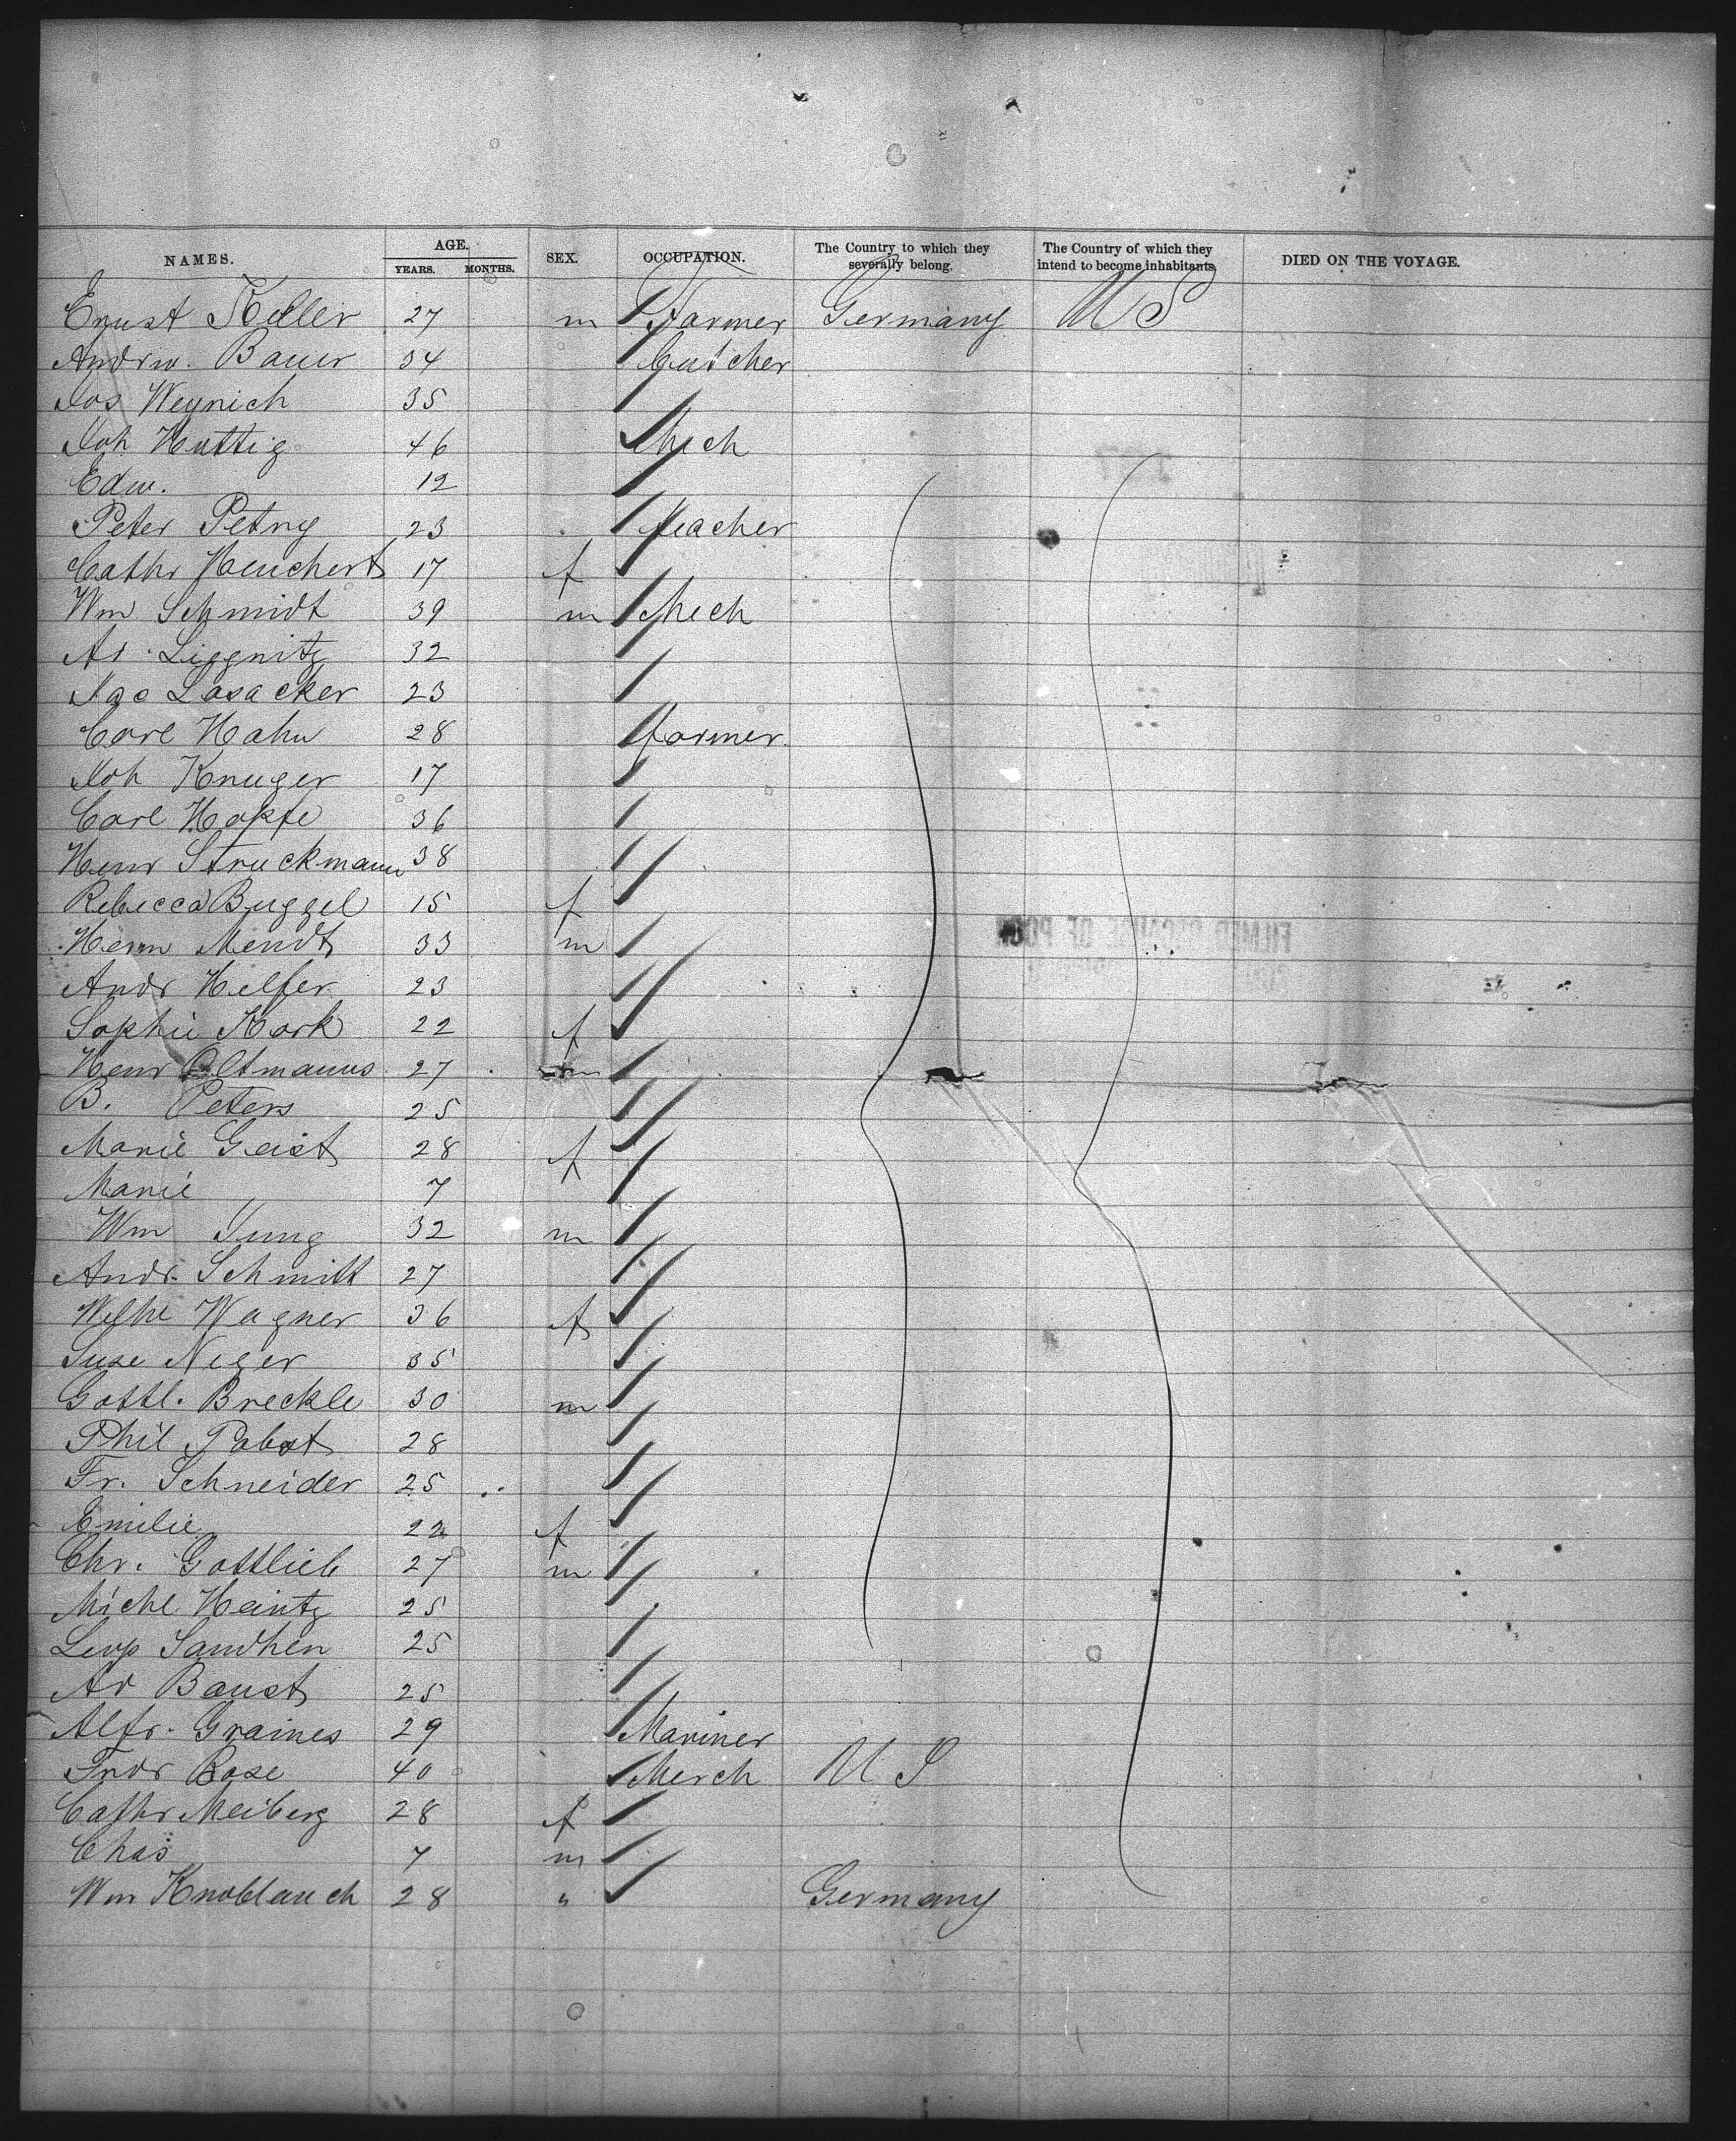 NAMES. AGE. YEARS. MONTHS. SEX. OCCUPATION. The Country to which they severally belong. The Country of which they intend to become inhabitants. DIED ON THE VOYAGE.
Ernst Keller 27 m Farmer Germany U S
Andrw. Bauer 34 butcher
Jos Weynich 35
Joh Huttig 46 Mech
Edw. 12
Peter Petry 23 teacher
Cathr Heuchert 17 f
Wm Schmidt 39 m Mech
Ad. Liegnitz 32
Jac Losacker 23
Carl Hahn 28 farmer.
Joh Kruger 17
Carl Hopfe 36
Henr Struckmann 38
Rebecca Buggel 15 f
Herm Mendt 33 m
Andr Helfer 23
Sophie Kork 22 f
Henr Oltmanns 27 m
B. Peters 25
Marie Geist 28 f
Marie 7
Wm Jung 32 m
Andr. Schmitt 27
Wilhe Wagner 36 f
Suse Neger 35
Gottl. Breckle 30 m
Phil Pabst 28
Fr. Schneider 25
Emilie 22 f
Chr. Gottlieb 27 m
Michl Heintz 25
Leop Sandhen 25
Ad Baust 25
Alfr. Graines 29 Mariner
Frdr Rose 40 Merch U S
Cathr Meiberg 28 f
Chas 7 m
Wm Knoblauch 28 " Germany